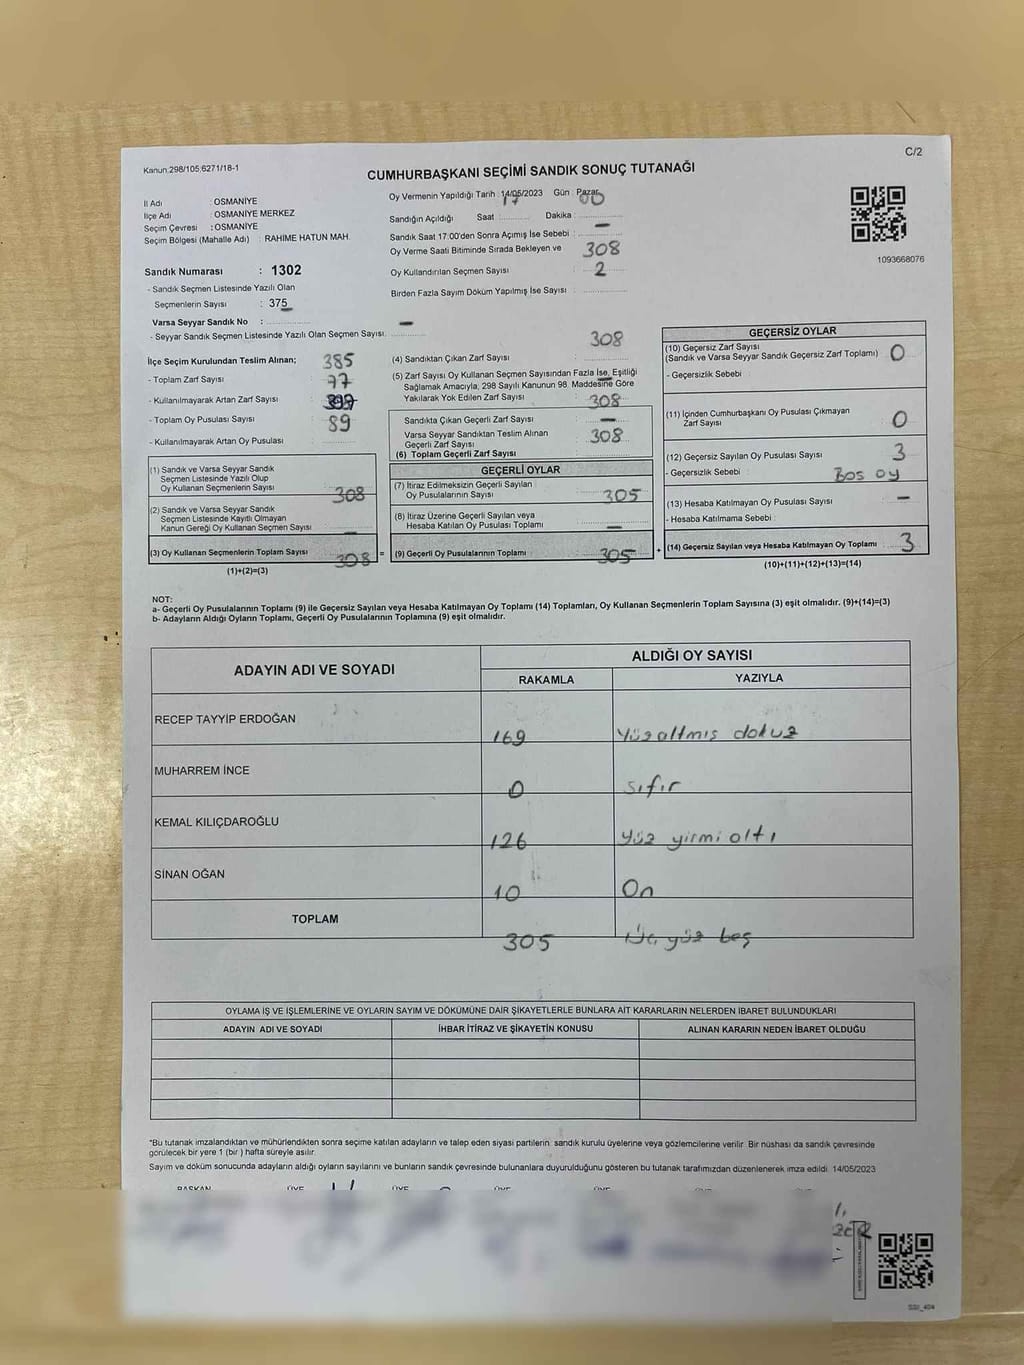 C/2
Kanun:298/105;6271/18-1
CUMHURBAŞKANI SEÇİMİ SANDIK SONUÇ TUTANAĞI
İl Adı : OSMANİYE
İlçe Adı : OSMANİYE MERKEZ
Seçim Çevresi : OSMANİYE
Seçim Bölgesi (Mahalle Adı) : RAHİME HATUN MAH.
Oy Vermenin Yapıldığı Tarih : 14/05/2023 Gün : Pazar
17 00
Sandığın Açıldığı Saat : Dakika :
Sandık Saat 17:00'den Sonra Açımış İse Sebebi : —
Oy Verme Saati Bitiminde Sırada Bekleyen ve 308
Oy Kullandırılan Seçmen Sayısı : 2
Birden Fazla Sayım Döküm Yapılmış İse Sayısı :
1093668076
Sandık Numarası : 1302
- Sandık Seçmen Listesinde Yazılı Olan
Seçmenlerin Sayısı : 375
Varsa Seyyar Sandık No : —
- Seyyar Sandık Seçmen Listesinde Yazılı Olan Seçmen Sayısı:
İlçe Seçim Kurulundan Teslim Alınan; 385
- Toplam Zarf Sayısı : 77
- Kullanılmayarak Artan Zarf Sayısı :
- Toplam Oy Pusulası Sayısı : 89
- Kullanılmayarak Artan Oy Pusulası :
(1) Sandık ve Varsa Seyyar Sandık
Seçmen Listesinde Yazılı Olup
Oy Kullanan Seçmenlerin Sayısı : 308
(2) Sandık ve Varsa Seyyar Sandık
Seçmen Listesinde Kayıtlı Olmayan
Kanun Gereği Oy Kullanan Seçmen Sayısı : —
(3) Oy Kullanan Seçmenlerin Toplam Sayısı : 308 =
(1)+(2)=(3)
308
(4) Sandıktan Çıkan Zarf Sayısı :
(5) Zarf Sayısı Oy Kullanan Seçmen Sayısından Fazla İse, Eşitliği
Sağlamak Amacıyla, 298 Sayılı Kanunun 98. Maddesine Göre
Yakılarak Yok Edilen Zarf Sayısı : 308
Sandıkta Çıkan Geçerli Zarf Sayısı : —
Varsa Seyyar Sandıktan Teslim Alınan
Geçerli Zarf Sayısı : 308
(6) Toplam Geçerli Zarf Sayısı :
GEÇERLİ OYLAR
(7) İtiraz Edilmeksizin Geçerli Sayılan
Oy Pusulalarının Sayısı : 305
(8) İtiraz Üzerine Geçerli Sayılan veya
Hesaba Katılan Oy Pusulası Toplamı : —
(9) Geçerli Oy Pusulalarının Toplamı : 305 +
GEÇERSİZ OYLAR
(10) Geçersiz Zarf Sayısı
(Sandık ve Varsa Seyyar Sandık Geçersiz Zarf Toplamı) : 0
- Geçersizlik Sebebi :
(11) İçinden Cumhurbaşkanı Oy Pusulası Çıkmayan
Zarf Sayısı : 0
(12) Geçersiz Sayılan Oy Pusulası Sayısı : 3
- Geçersizlik Sebebi : Bos oy
(13) Hesaba Katılmayan Oy Pusulası Sayısı : —
- Hesaba Katılmama Sebebi :
(14) Geçersiz Sayılan veya Hesaba Katılmayan Oy Toplamı : 3
(10)+(11)+(12)+(13)=(14)
NOT:
a- Geçerli Oy Pusulalarının Toplamı (9) ile Geçersiz Sayılan veya Hesaba Katılmayan Oy Toplamı (14) Toplamları, Oy Kullanan Seçmenlerin Toplam Sayısına (3) eşit olmalıdır. (9)+(14)=(3)
b- Adayların Aldığı Oyların Toplamı, Geçerli Oy Pusulalarının Toplamına (9) eşit olmalıdır.
ADAYIN ADI VE SOYADI
ALDIĞI OY SAYISI
RAKAMLA YAZIYLA
RECEP TAYYİP ERDOĞAN 169 Yüz altmış dokuz
MUHARREM İNCE 0 sıfır
KEMAL KILIÇDAROĞLU 126 yüz yirmi altı
SİNAN OĞAN 10 On
TOPLAM 305 Üç yüz beş
OYLAMA İŞ VE İŞLEMLERİNE VE OYLARIN SAYIM VE DÖKÜMÜNE DAİR ŞİKAYETLERLE BUNLARA AİT KARARLARIN NELERDEN İBARET BULUNDUKLARI
ADAYIN ADI VE SOYADI İHBAR İTİRAZ VE ŞİKAYETİN KONUSU ALINAN KARARIN NEDEN İBARET OLDUĞU
*Bu tutanak imzalandıktan ve mühürlendikten sonra seçime katılan adayların ve talep eden siyasi partilerin sandık kurulu üyelerine veya gözlemcilerine verilir. Bir nüshası da sandık çevresinde
görülecek bir yere 1 (bir ) hafta süreyle asılır.
Sayım ve döküm sonucunda adayların aldığı oyların sayılarını ve bunların sandık çevresinde bulunanlara duyurulduğunu gösteren bu tutanak tarafımızdan düzenlenerek imza edildi. 14/05/2023
BAŞKAN ÜYE ÜYE ÜYE ÜYE ÜYE ÜYE